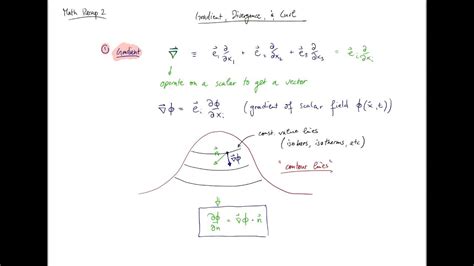 Math Recap 2
Gradient, Divergence, & Curl
① Gradient
∇⃗ ≡ e⃗₁ ∂/∂x₁ + e⃗₂ ∂/∂x₂ + e⃗₃ ∂/∂x₃ = e⃗ᵢ ∂/∂xᵢ
operate on a scalar to get a vector
∇⃗ϕ = e⃗ᵢ ∂ϕ/∂xᵢ (gradient of scalar field ϕ(x⃗,t))
const. value lines
(isobars, isotherms, etc)
n⃗
∇⃗ϕ
"contour lines"
∂ϕ/∂n = ∇⃗ϕ · n⃗